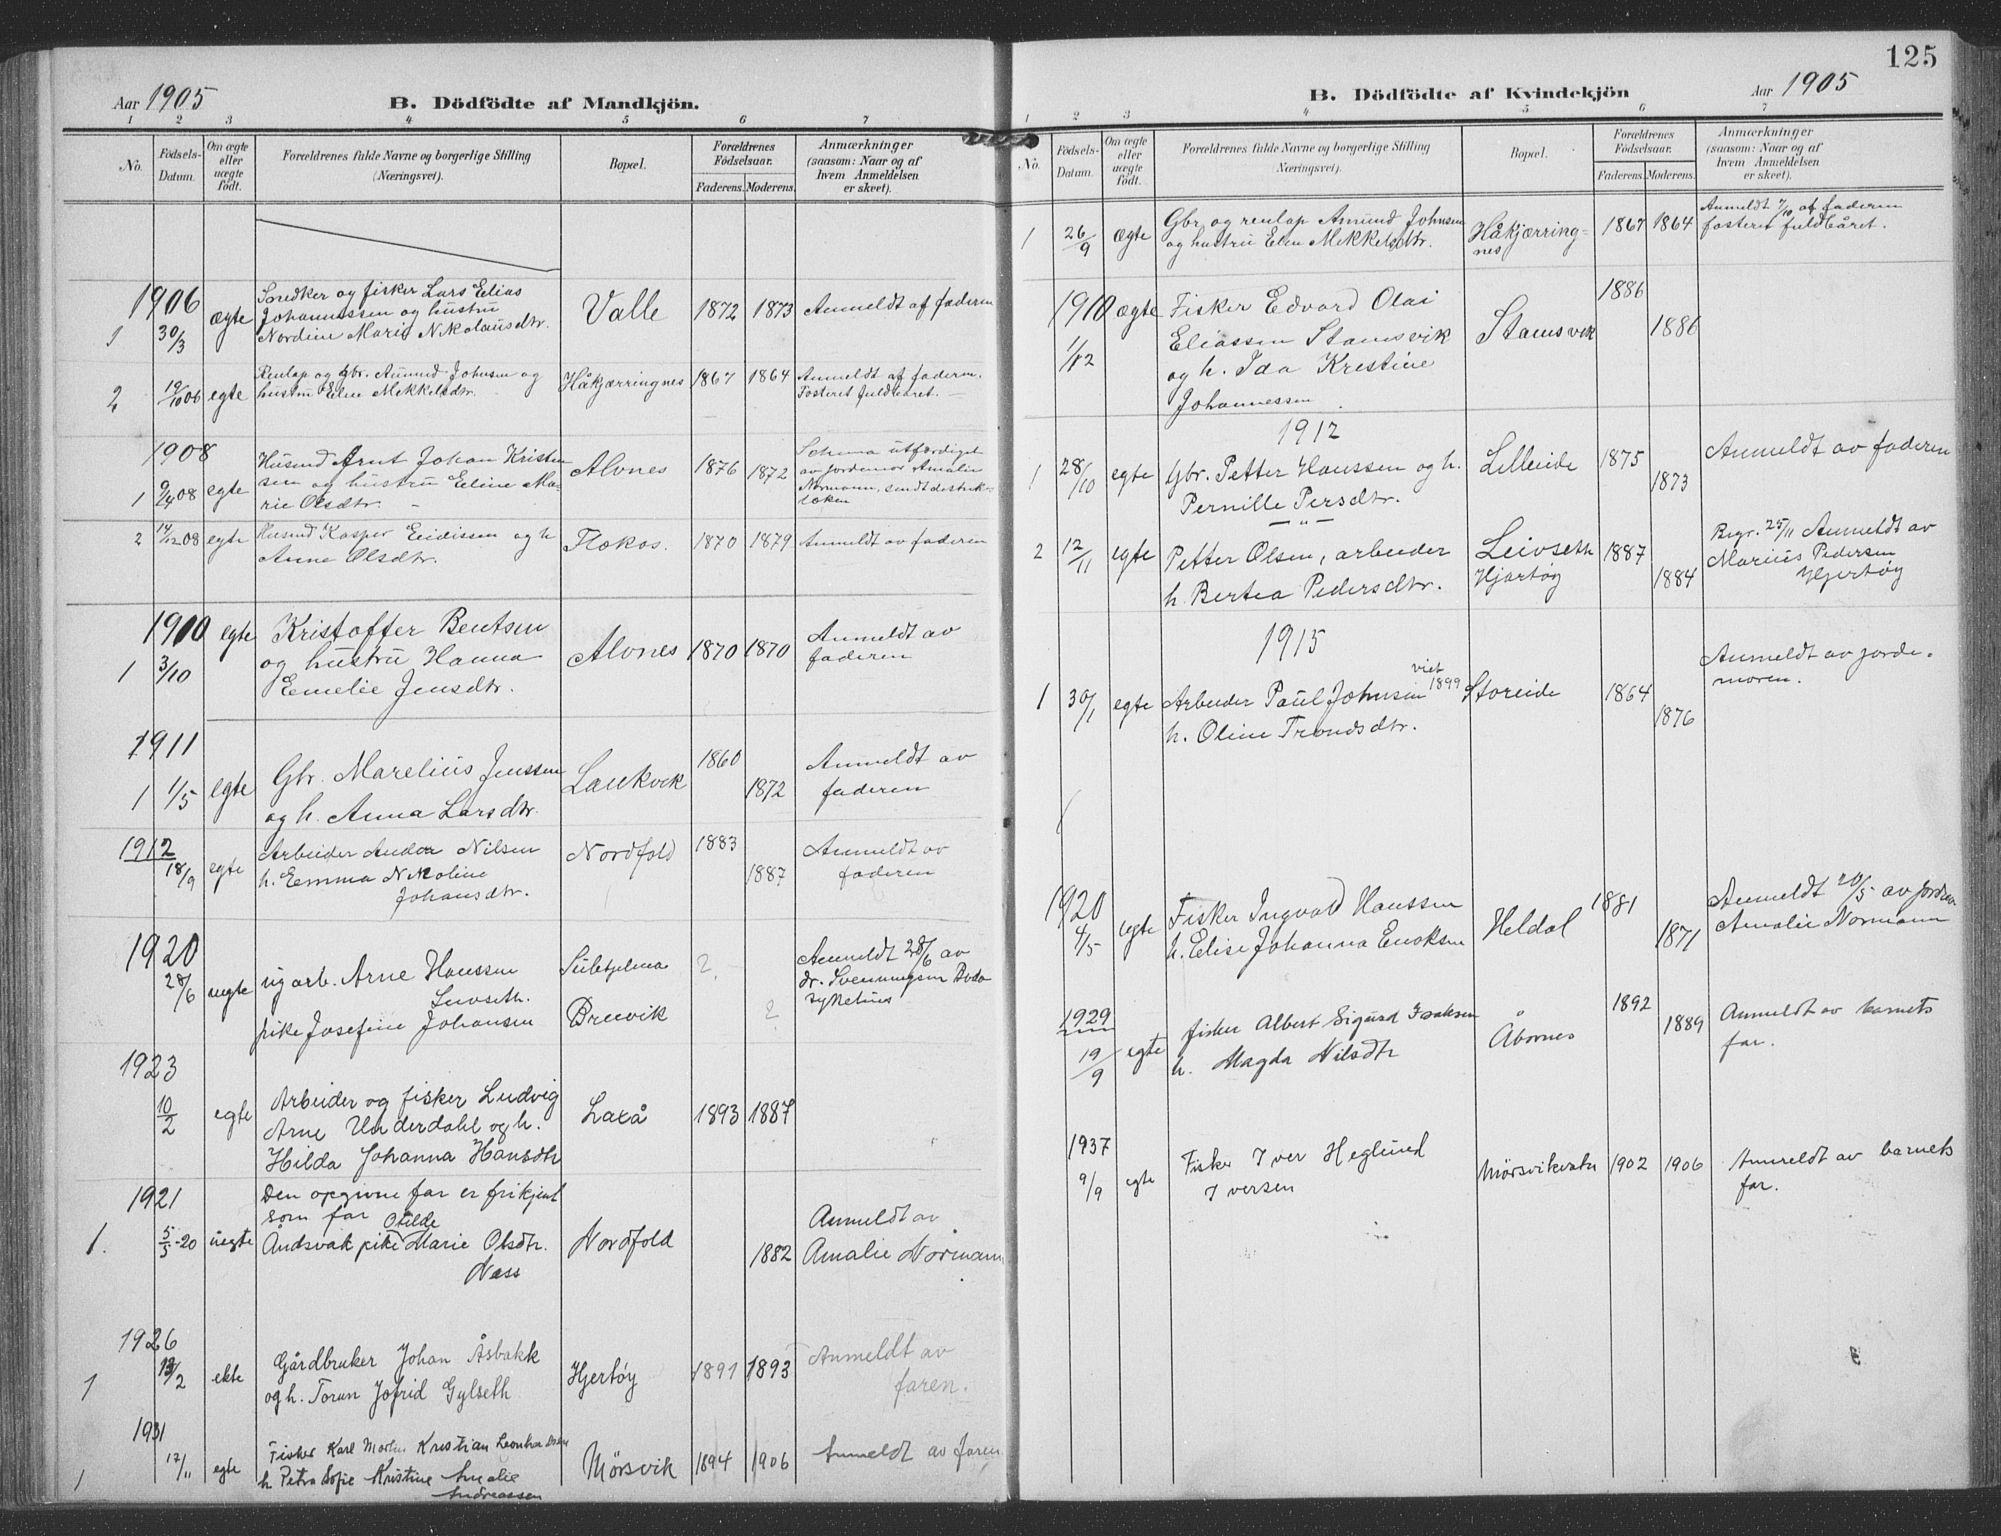 Aar 1905
B. Dödfödte af Mandkjön.
1 2 3 4 5 6 7
No.
Fødsels-
Datum.
Om ægte
eller
uægte
født.
Forældrenes fulde Navne og borgerlige Stilling
(Næringsvei).
Bopæl.
Forældrenes
Fødselsaar.
Faderens. Moderens.
Anmærkninger
(saasom: Naar og af
hvem Anmeldelsen
er skeet).
1906
1 30/3 ægte
Snedker og fisker Lars Elias
Johannessen og hustru
Nordine Marie Nikolausdtr.
Valle 1872 1873 Anmeldt af faderen
2 19/10 06 egte
Renlap og gbr. Amund Johnsen og
hustru Elen Mekkelsdtr.
Håkjærringnes 1867 1864
Anmeldt af faderen.
Fosteret fuldbåret.
1908
1 9/4 08 egte
Husmd Arnt Johan Kristen
sen og hustru Eline Ma-
rie Olsdtr.
Alvnes 1876 1872
Schema utfærdiget
av jordemor Amalie
Normann, sendt distrikts-
lægen
2 14/12 08 egte
Husmd Kasper Eidissen og h
Anne Olsdtr.
Flokos. 1870 1879 Anmeldt av faderen
1910
1 3/10 egte
Kristoffer Bentsen
og hustru Hanna
Emelie Jensdtr.
Alvnes 1870 1870
Anmeldt av
faderen
1911
1 1/5 egte
Gbr. Marelius Jenssen
og h. Anna Larsdtr.
Laukvik 1860 1872
Anmeldt av
faderen
1912
18/9 egte
Arbeider Andor Nilsen
h. Emma Nikoline
Johansdtr.
Nordfold 1883 1887
Anmeldt av
faderen
1920
28/6 uegte
ug arb. Arne Hanssen
Leivseth.
pike Josefine Johansen
Sulitjelma
Brevik
? ?
Anmeldt 28/6 av
dr. Svenningsen Bodø
sykehus
1923
10/2 egte
Arbeider og fisker Ludvig
Arne Underdahl og h.
Hilda Johanna Hansdtr
Laxå 1893 1887
1921
1. 5/5-20 uegte
Den opgivne far er frikjent
som far
Otilde
Åndsvak pike Marie Olsdtr.
Næss
Nordfold 1882
Anmeldt av
Amalie Normann
1926
1 13/2 ekte
Gårdbruker Johan Åsbakk
og h. Torun Jofrid Gylseth
Hjertøy 1891 1893
Anmeldt av
faren.
1931
1 12/11 egte
Fisker Karl Martin Kristian Leonhardsen
h Petra Sofie Kristine Amalie
Andreassen
Mørsvik 1894 1906 Anmeldt av faren
125
B. Dödfödte af Kvindekjön
Aar 1905
1 2 3 4 5 6 7
No.
Fødsels-
Datum.
Om ægte
eller
uægte
født.
Forældrenes fulde Navne og borgerlige Stilling
(Næringsvei).
Bopæl.
Forældrenes
Fødselsaar.
Faderens. Moderens.
Anmærkninger
(saasom: Naar og af
hvem Anmeldelsen
er skeet).
1 26/9 ægte
Gbr og renlap Amund Johnsen
og hustru Elen Mekkelsdtr.
Håkjærring-
nes
1867 1864
Anmeldt 7/10 af faderen
fosteret fuldbåret.
1910 ægte
1/12
Fisker Edvard Olai
Eliassen Stamsvik
og h. Ida Kristine
Johannessen
Stamsvik 1886 1886
1912
1 28/10 egte
Gbr. Petter Hanssen og h.
Pernille Persdtr.
Lilleide 1875 1873 Anmeldt av faderen
— " —
2 12/11 egte
Petter Olsen, arbeider
h. Bertea Pedersdtr.
Leivseth
Hjartøy
1887 1884
Begr. 25/11 Anmeldt av
Marius Pedersen
Hjertøy
1915
1 30/1 egte
viet
1899
Arbeider Paul Johnsen
h. Oline Trondsdtr.
Storeide 1864 1876
Anmeldt av jorde-
moren.
1920
4/5 egte
Fisker Ingvald Hanssen
h. Elise Johanna Enoksen
Heldal 1881 1871
Anmeldt 20/5 av jordem
Amalie Normann
1929
19/9 egte
fisker Albert Sigurd Isaksen
h. Magda Nilsdtr
Åbornes 1892 1889
Anmeldt av barnets
far.
1937
9/9 egte
Fisker Iver Heglund
Iversen
Mørsvikvatn 1902 1906
Anmeldt av barnets
far.